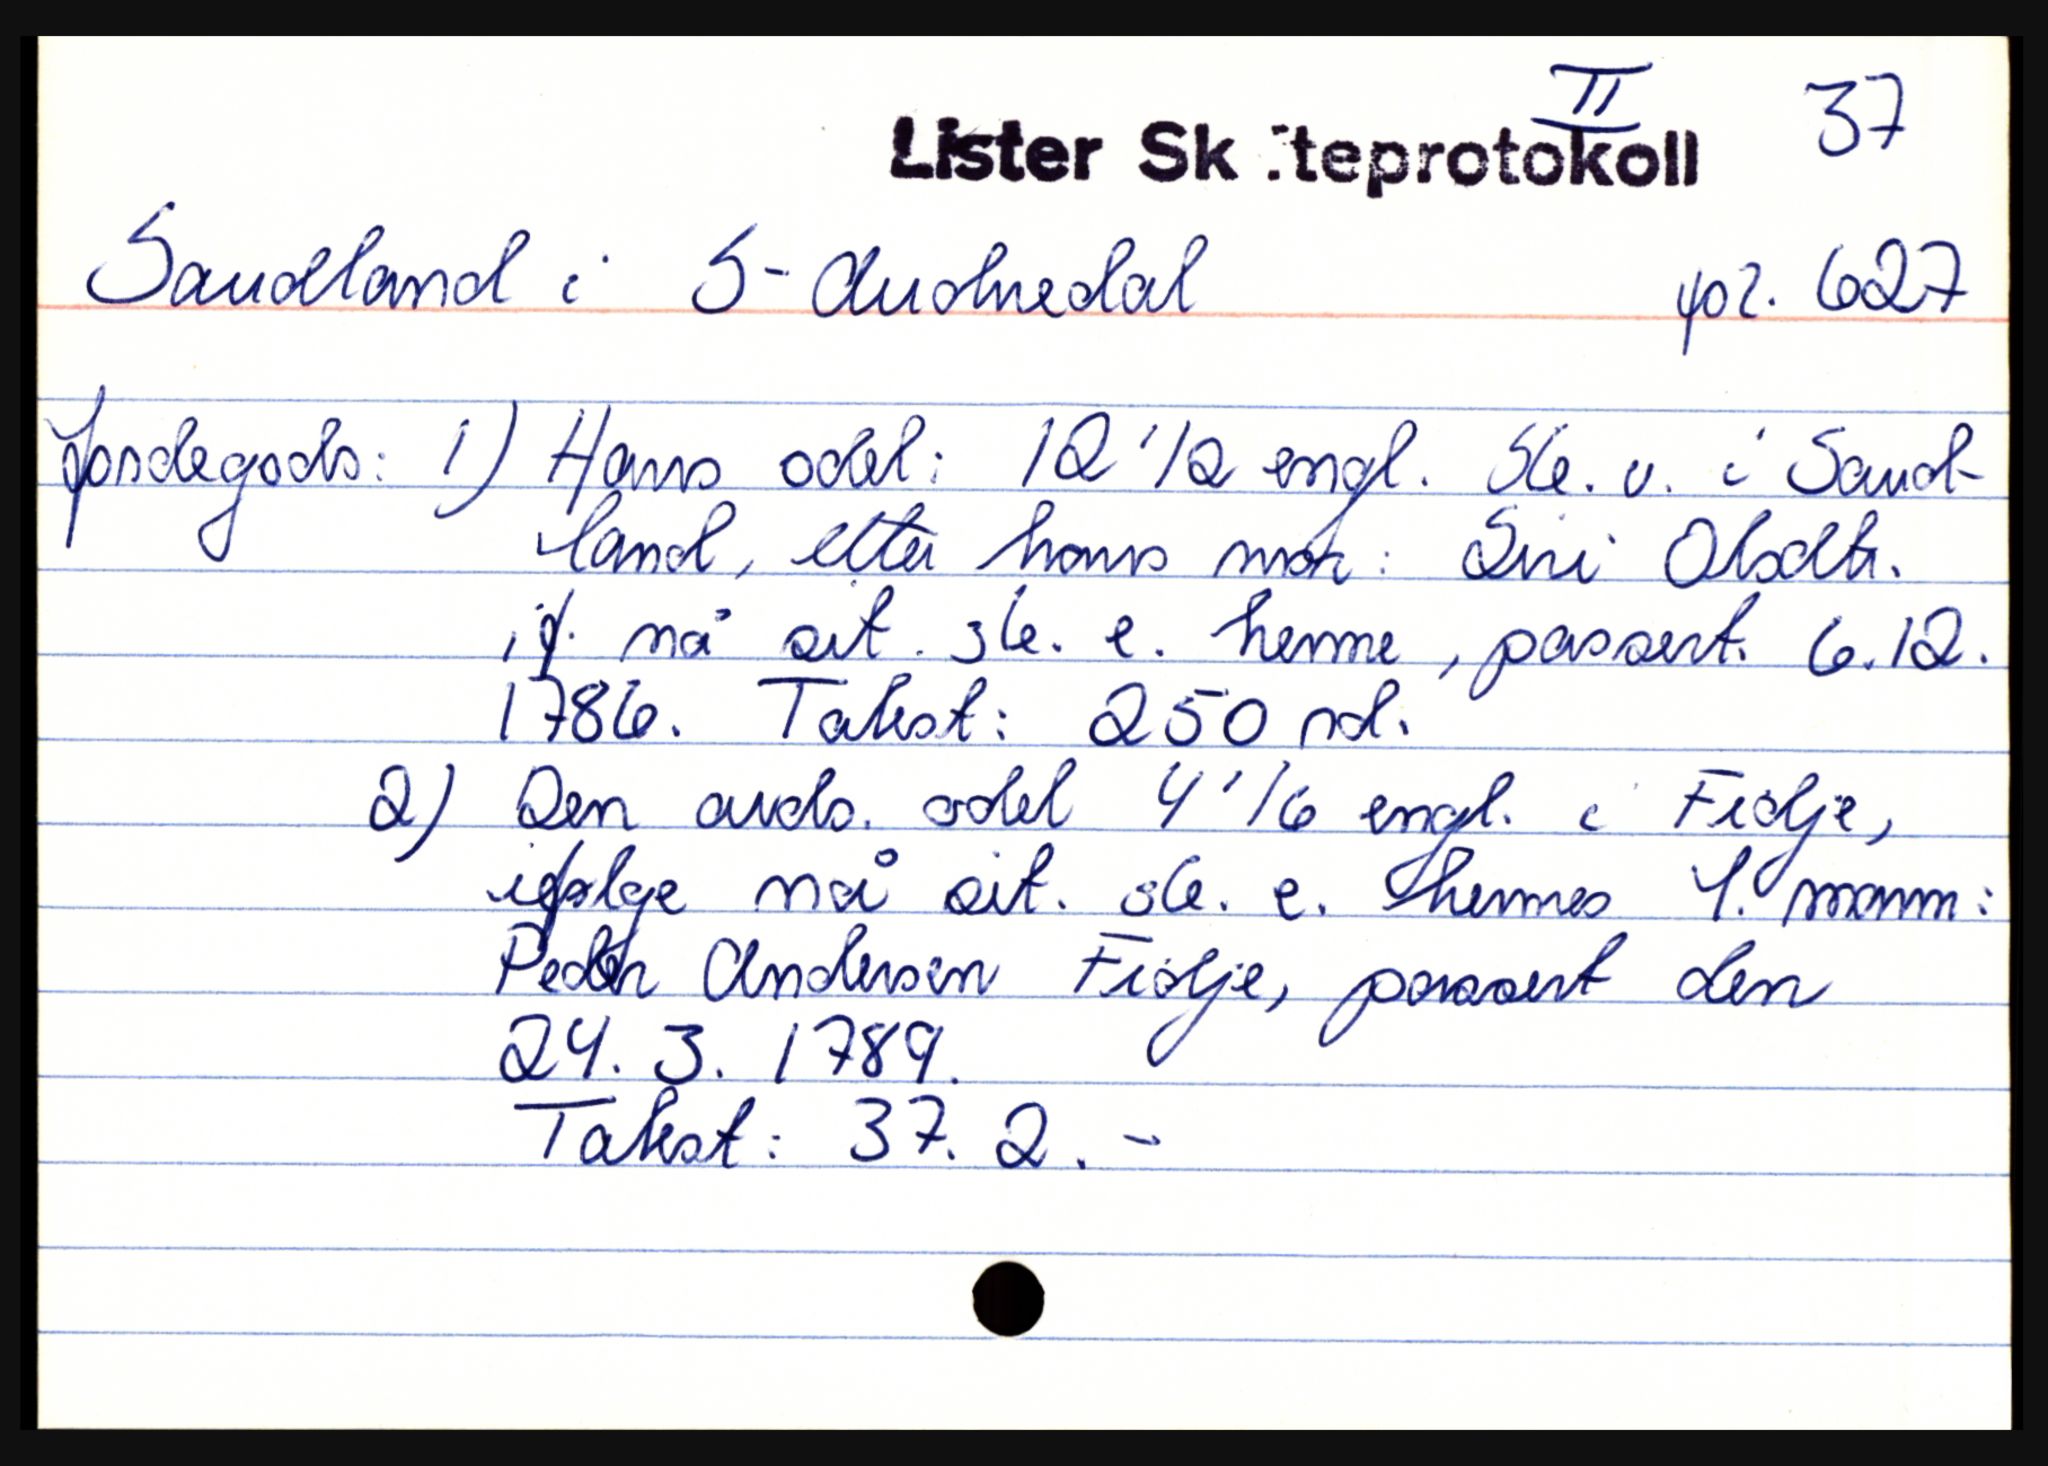 II 37
Lister Sk iteprotokoll
Saudland i S-Audnedal fol. 627
Jordegods: 1) Hans odel: 12 1/2 engl. sk. v. i Saud-
land, etter hans mor: Siri Olsdtr.
if. nå sit. sk. e. henne, passert. 6.12.
1786. Takst: 250 rd.
2) Den avds. odel 4 1/6 engl. i Fidje,
ifølge nå sit. sk. e. hennes 1. mann:
Peder Andersen Fidje, passert den
24. 3. 1789.
Takst: 37. 2. -